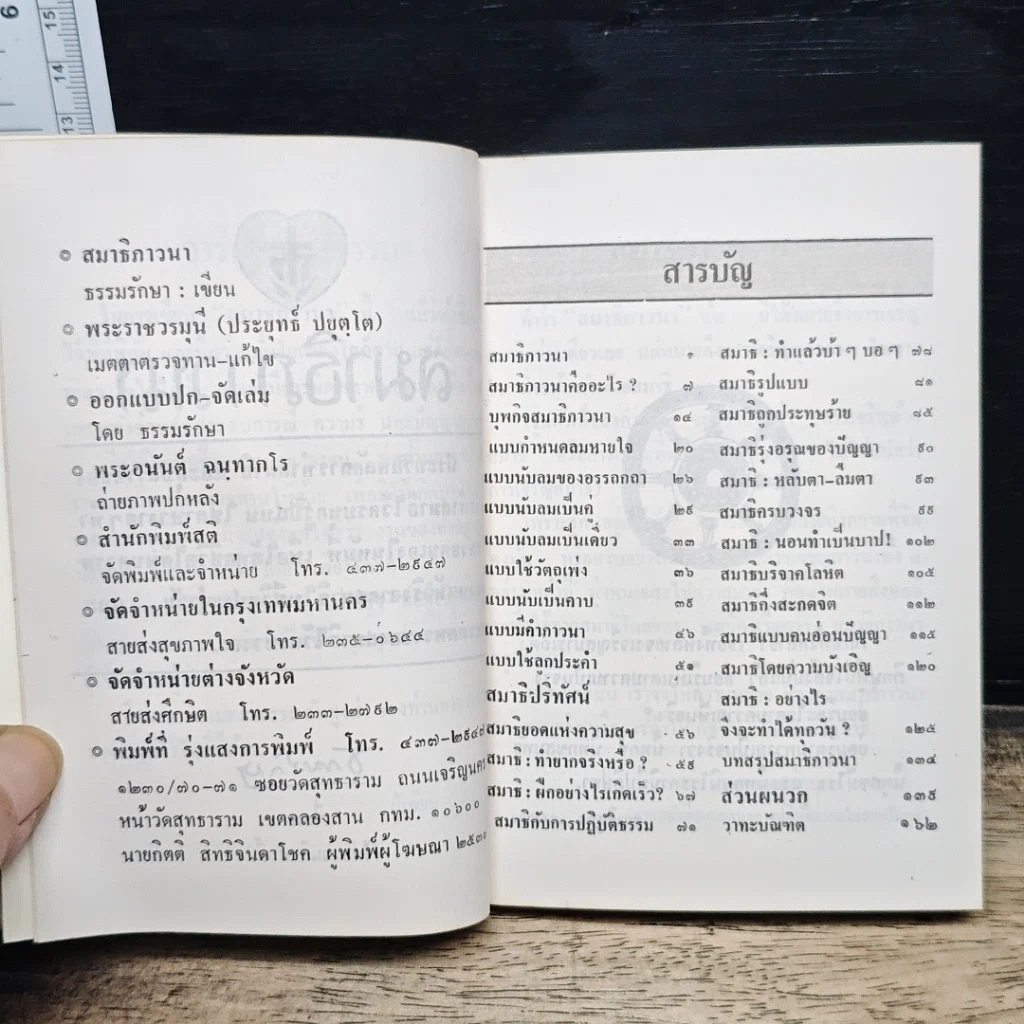 ๏ สมาธิภาวนา
ธรรมรักษา : เขียน
๏ พระราชวรมุนี (ประยุทธ์ ปยุตฺโต)
เมตตาตรวจทาน-แก้ไข
๏ ออกแบบปก-จัดเล่ม
โดย ธรรมรักษา
๏ พระอนันต์ ฉนฺทากโร
ถ่ายภาพปกหลัง
๏ สำนักพิมพ์สติ
จัดพิมพ์และจำหน่าย โทร. ๔๓๗-๒๙๔๗
๏ จัดจำหน่ายในกรุงเทพมหานคร
สายส่งสุขภาพใจ โทร. ๒๓๕-๐๖๔๔
๏ จัดจำหน่ายต่างจังหวัด
สายส่งศึกษิต โทร. ๒๓๓-๒๗๙๒
๏ พิมพ์ที่ รุ่งแสงการพิมพ์ โทร. ๔๓๗-๒๙๔๗
๑๒๓๐/๗๐-๗๑ ซอยวัดสุทธาราม ถนนเจริญนคร
หน้าวัดสุทธาราม เขตคลองสาน กทม. ๑๐๖๐๐
นายกิตติ สิทธิจินดาโชค ผู้พิมพ์ผู้โฆษณา
สารบัญ
สมาธิภาวนา ๑
สมาธิภาวนาคืออะไร ? ๗
บุพกิจสมาธิภาวนา ๑๔
แบบกำหนดลมหายใจ ๒๐
แบบนับลมของอรรถกถา ๒๖
แบบนับลมเป็นคู่ ๒๙
แบบนับลมเป็นเดี่ยว ๓๓
แบบใช้วัตถุเพ่ง ๓๖
แบบนับเป็นคาบ ๓๙
แบบมีคำภาวนา ๔๖
แบบใช้ลูกประคำ ๕๑
สมาธิปริทัศน์
สมาธิยอดแห่งความสุข ๕๖
สมาธิ : ทำยากจริงหรือ ? ๕๙
สมาธิ : ฝึกอย่างไรเกิดเร็ว? ๖๗
สมาธิกับการปฏิบัติธรรม ๗๑
สมาธิ : ทำแล้วบ้า ๆ บอ ๆ ๗๘
สมาธิรูปแบบ ๘๑
สมาธิถูกประทุษร้าย ๘๕
สมาธิรุ่งอรุณของปัญญา ๙๐
สมาธิ : หลับตา-ลืมตา ๙๓
สมาธิครบวงจร ๙๙
สมาธิ : นอนทำเป็นบาป! ๑๐๒
สมาธิบริจาคโลหิต ๑๐๕
สมาธิกึ่งสะกดจิต ๑๑๒
สมาธิแบบคนอ่อนปัญญา ๑๑๕
สมาธิโดยความบังเอิญ ๑๒๐
สมาธิ : อย่างไร
จึงจะทำได้ทุกวัน ? ๑๒๕
บทสรุปสมาธิภาวนา ๑๓๔
ส่วนผนวก ๑๓๙
วาทะบัณฑิต ๑๖๒
6
15
14
13